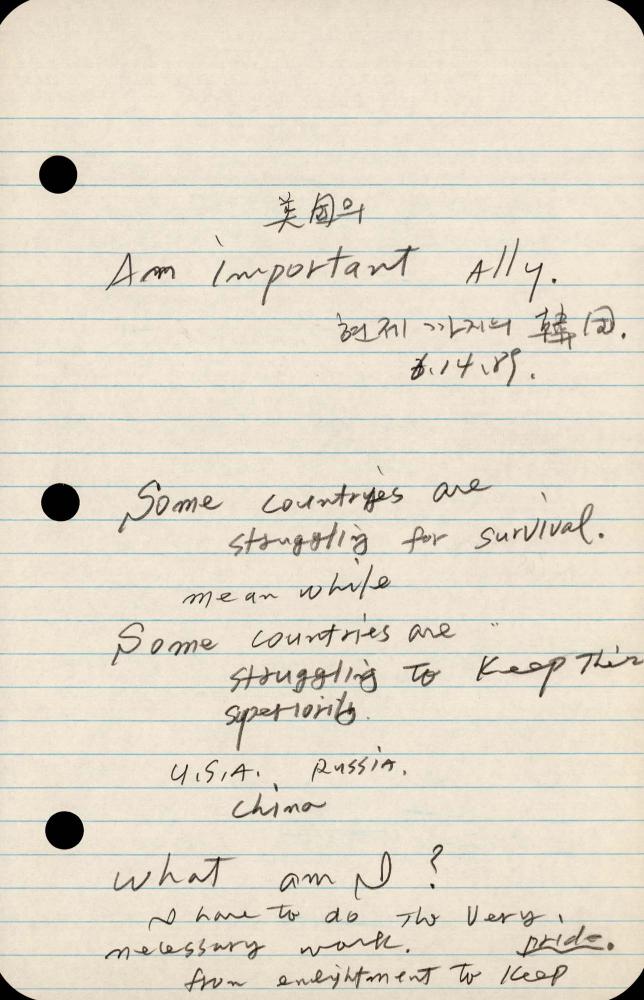 美国의
Am important Ally.
현제 까지의 韓国.
6.14.89.
Some countries are
struggling for survival.
mean while
Some countries are
struggling to Keep Thir
superiority.
U.S.A. Russia.
China
What am I ?
I have to do The Very
necessary work. pride.
from enlightment to Keep